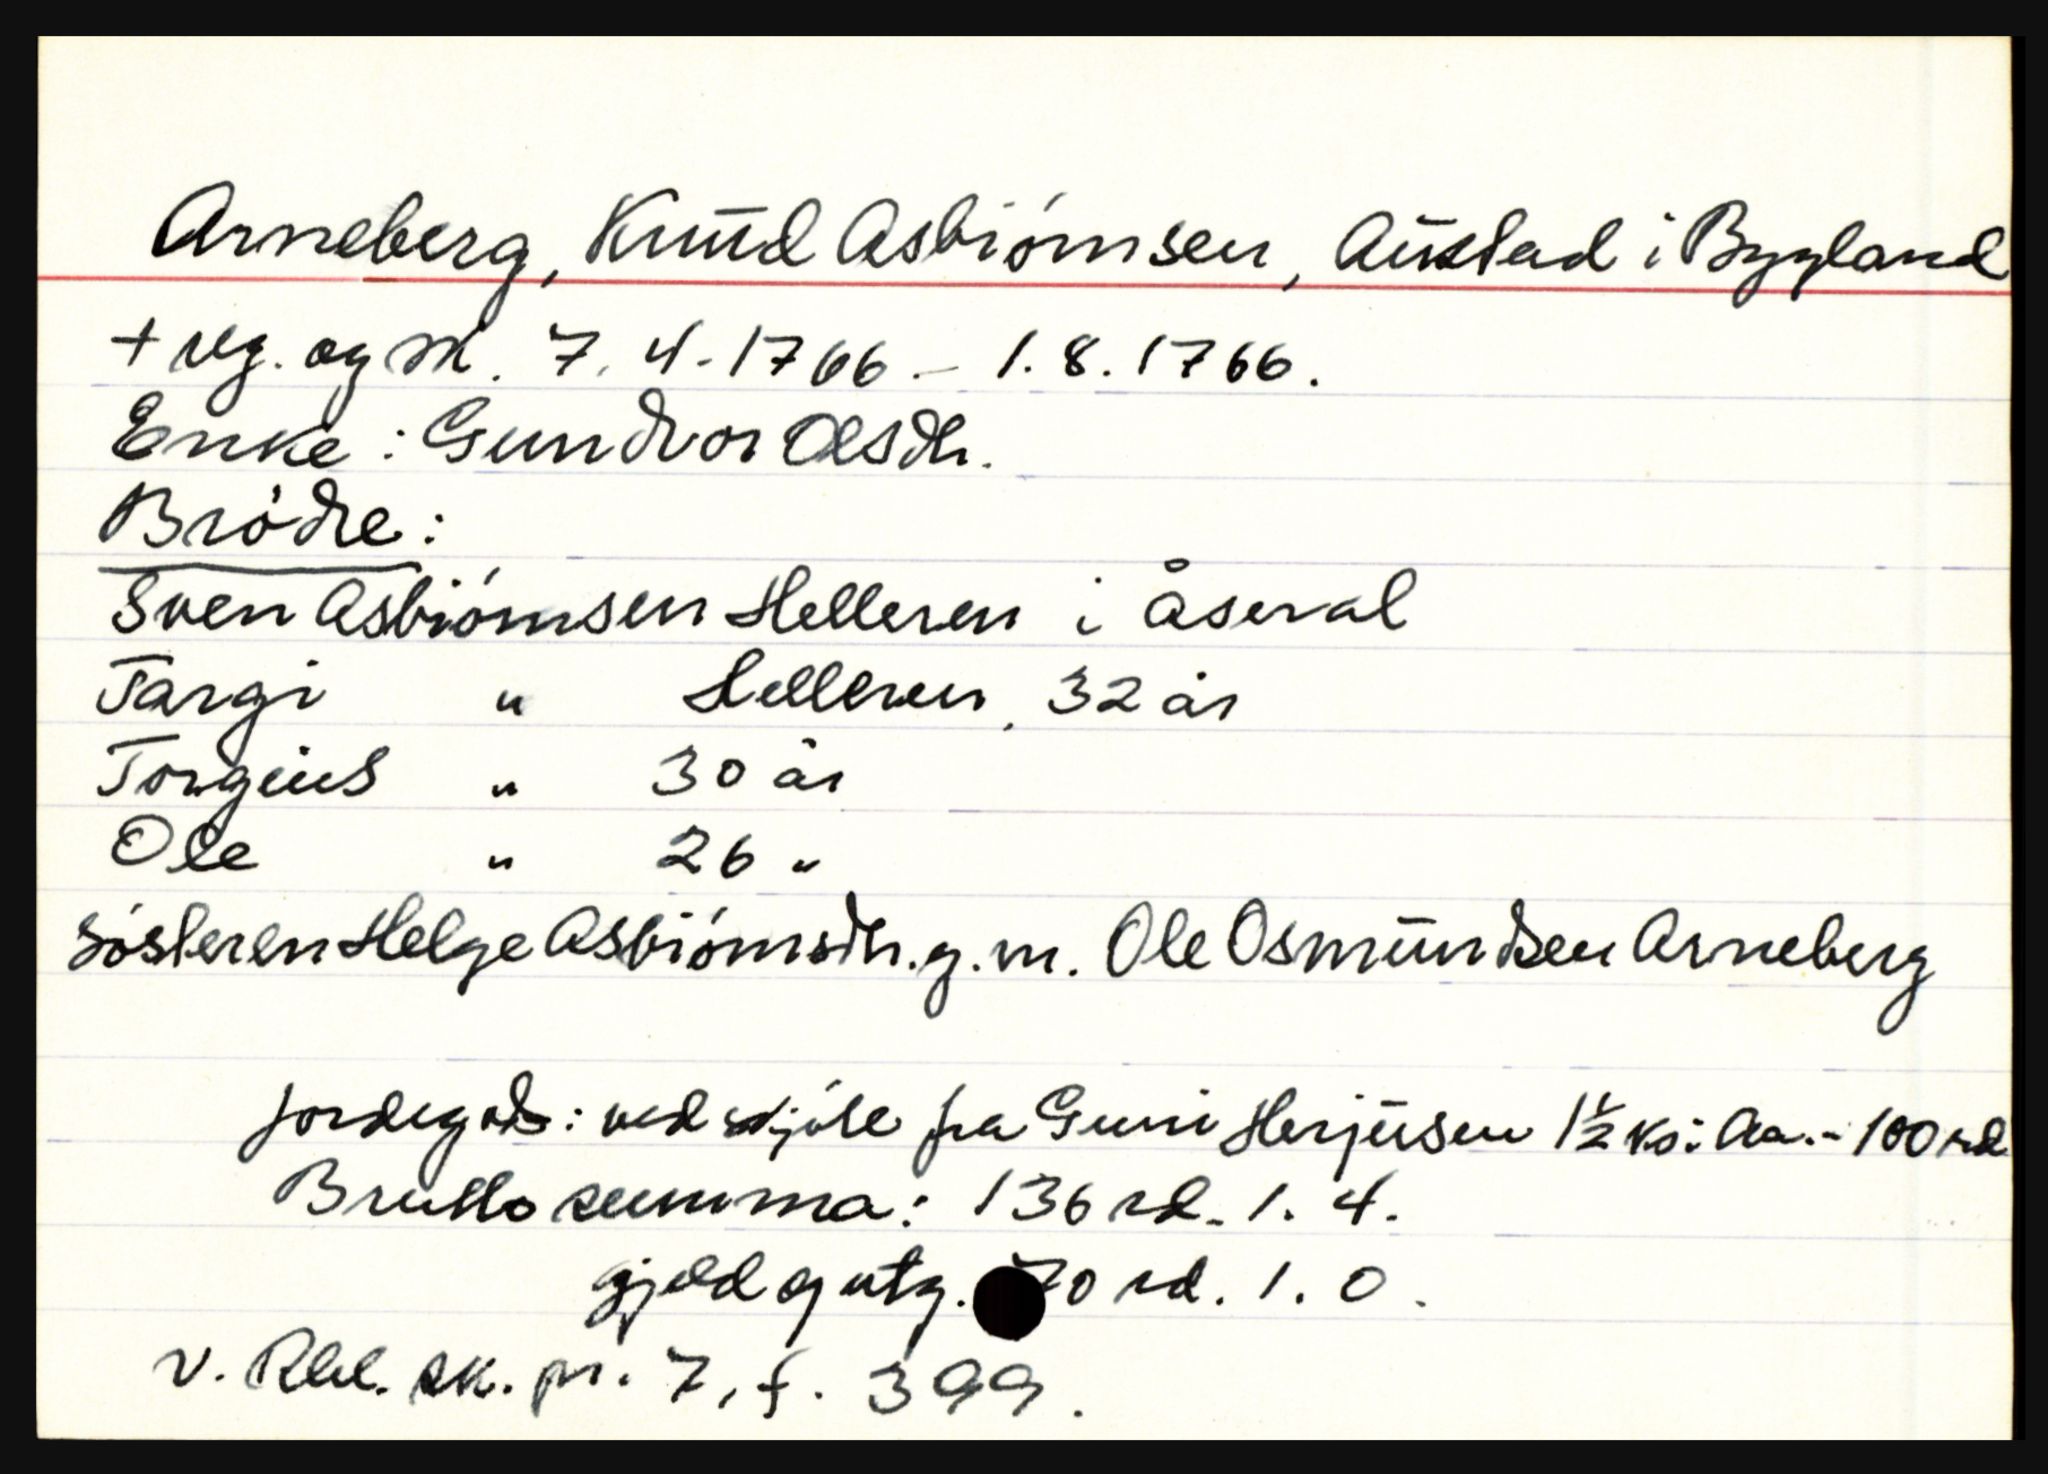 Arneberg, Knud Asbiörnsen, Austad i Bygland
+ reg. og sk. 7.4.1766 – 1.8.1766.
Enke: Gundvor Olsdtr.
Brödre:
Sven Asbiörnsen Helleren i Åseral
Targi " Helleren, 32 år
Torgius " 30 år
Ole " 26 "
Sösteren Helge Asbiörnsdtr. g. m. Ole Osmundsen Arneberg
Jordegods: ved skjöte fra Guni Herjusen 1½ ks: Aa.- 100 rd
Brutto summa: 136 rd. 1. 4.
gjeld og utg. 70 rd. 1. 0.
v. Rbl. sk. pr. 7, f. 399.